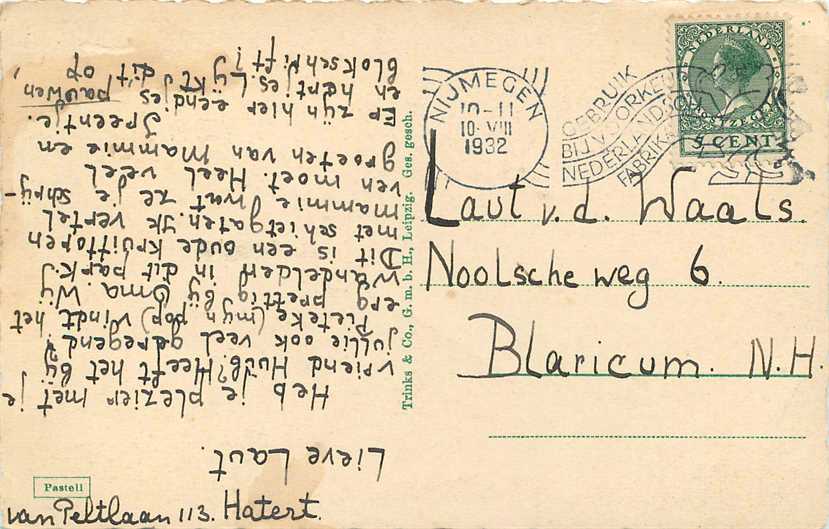 Lieve Laut.
Heb je plezier met je
vriend Huib? Heeft het bij
jullie ook veel geregend?
Pieteke (mijn pop) vindt het
erg prettig bij Oma. Wij
wandelden in dit park.
Dit is een oude kruittoren
met schietgaten. Ik vertel
mammie wat ze je schrij-
ven moet. Heel veel
groeten van Mammie en
Preentje.
Er zijn hier eendjes pauwen,
en hertjes. Lijkt dit op
blokschrift?
van Peltlaan 113. Hatert.
Pastell
Trinks & Co., G. m. b. H., Leipzig. Ges. gesch.
NIJMEGEN
10-11
10·VIII
1932
GEBRUIK
BIJ VOORKEUR
NEDERLANDSCH
FABRIKAAT
NEDERLAND
5 CENT
Laut v.d. Waals.
Noolsche weg 6.
Blaricum. N.H.